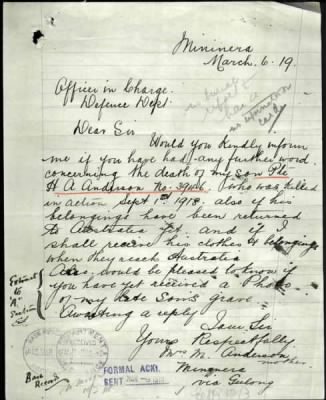 Mininera
March. 6. 19.
Officer in Charge.
Defence Dept.
Dear Sir
Would you kindly inform
me if you have had any further word
concerning the death of my son Pte
H A Anderson No. 3946. who was killed
in action Sept 1st 1918. also if his
belongings have been returned
to Australia yet and if I
shall receive his clothes & belongings
when they reach Australia
Also would be pleased to know if
you have yet received a Photo
of my late Son's grave
Awaiting a reply
I am Sir
Yours Respectfully
Mrs M. Anderson
mother
Mininera
via
Extract
to
"A"
RECEIVED
FORMAL ACK.
SENT
Base
Records